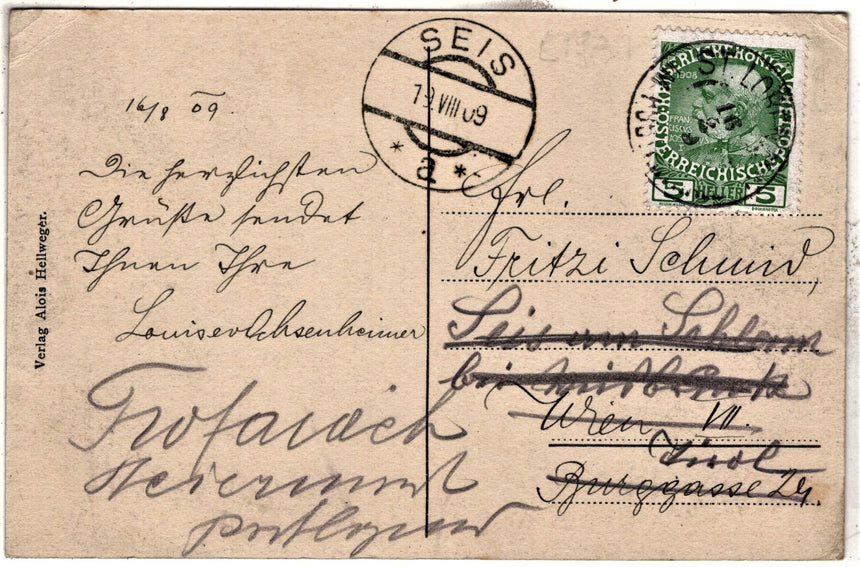 16/8 09.
Die herzlichsten
Grüße sendet
Ihnen Ihre
Louise v Ochsenheimer
Trofaiach
Steiermark
postlagernd
Verlag Alois Hellweger.
SEIS
19.VIII 09
* a *
1908
FRAN
ÖSTERREICHISCHE
5 HELLER 5
ST. LO
Frl.
Fritzi Schmid,
Seis am Schlern
bei
Wien VII.
Tirol
Burggasse 24.